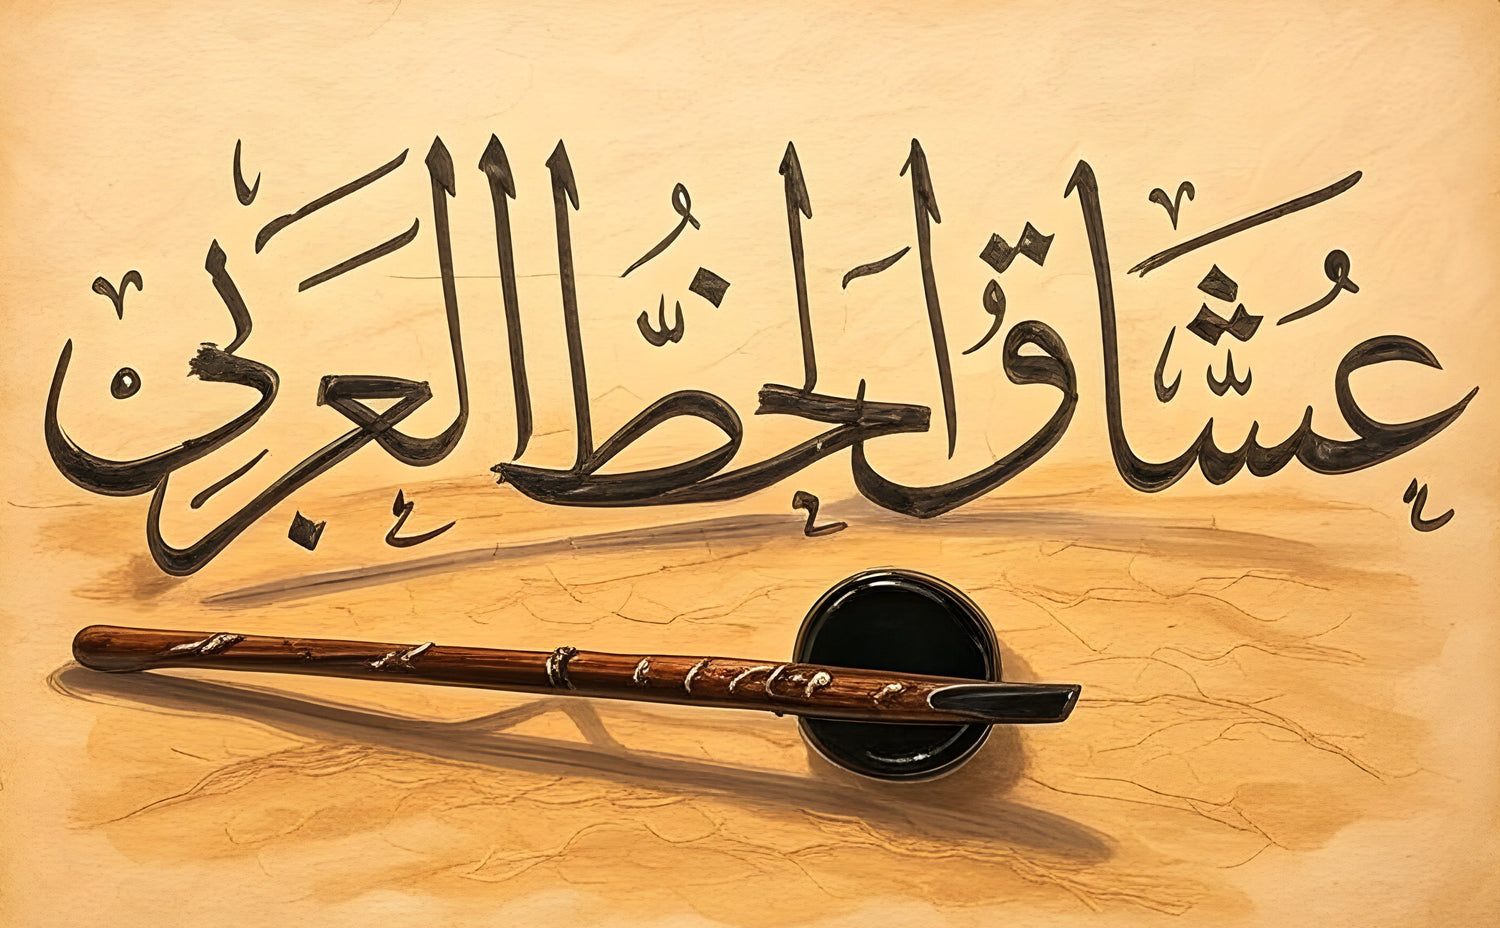 عُشَّاقُ الخطُّ العربي